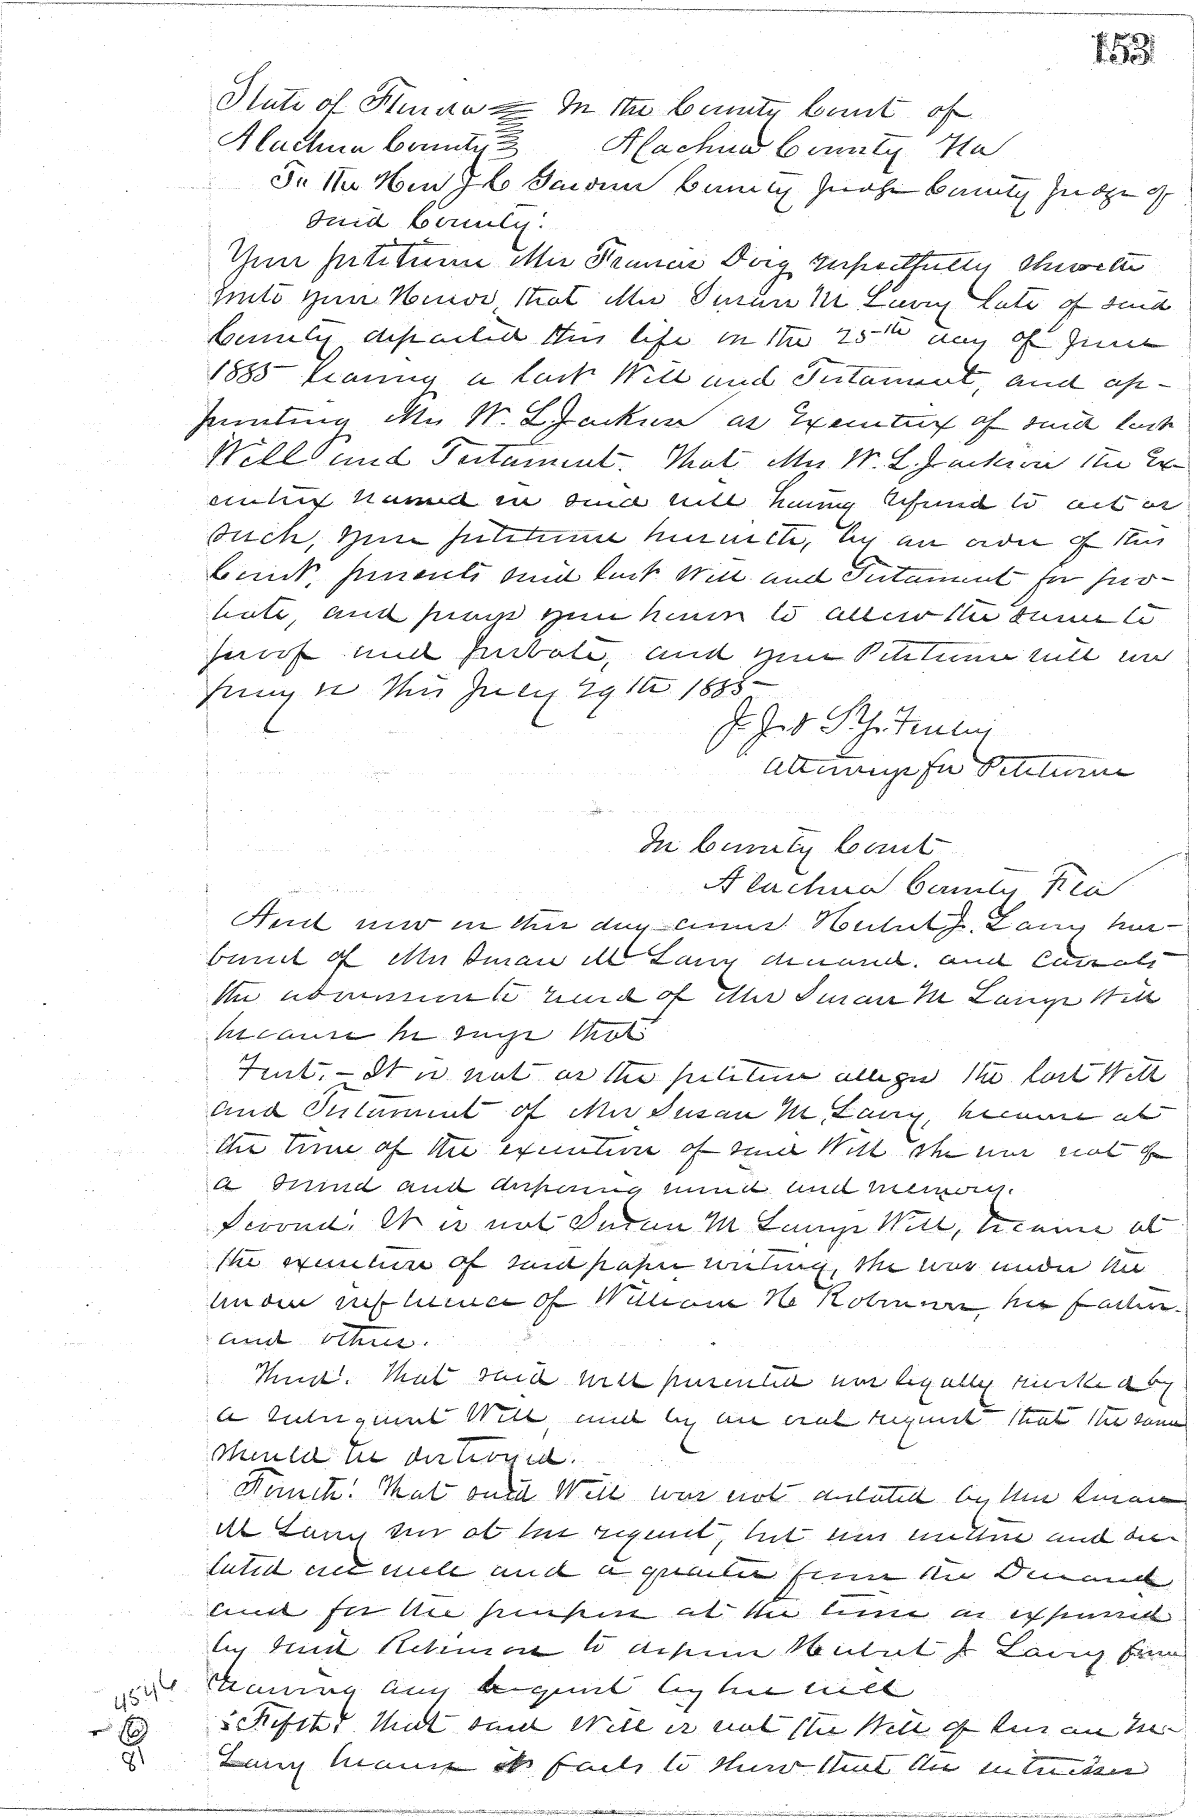 153
State of Florida In the County Court of
Alachua County Alachua County Fla
To the Hon J C Gardner County Judge County Judge of
said County:
Your petitioner Mrs Francis Doig respectfully sheweth
unto your Honor, that Mrs Susan M Larry late of said
County departed this life on the 25th day of June
1885 leaving a last Will and Testament, and ap-
pointing Mrs W. L Jackson as Executrix of said last
Will and Testament. That Mrs W. L. Jackson the Ex-
ecutrix named in said will having refused to act as
such, your petitioner herewith, by an order of this
Court, presents said last Will and Testament for pro-
bate, and prays your honor to allow the same to
proof and probate, and your Petitioner will ever
pray &c this July 29th 1885
J. J. & S. Y. Finley
Attorneys for Petitioner
In County Court
Alachua County Fla
And now on this day comes Herbert J. Larry hus-
band of Mrs Susan M Larry deceased. and caveats
the admission to record of Mrs Susan M Larrys Will
because he says that
First. - It is not as the petition alleges the last Will
and Testament of Mrs Susan M. Larry, because at
the time of the execution of said Will she was not of
a sound and disposing mind and memory.
Second. It is not Susan M Larrys Will, because at
the execution of said paper writing, she was under the
undue influence of William H Robinson, her father.
and others.
Third. That said will presented was legally revoked by
a subsequent Will, and by an oral request that the same
should be destroyed.
Fourth. That said Will was not dictated by Mrs Susan
M Larry nor at her request, but was written and dic-
tated one mile and a quarter from the Deceased
and for the purpose at the time as expressed
by said Robinson to deprive Herbert J Larry from
having any bequest by her will
Fifth. That said Will is not the Will of Susan M.
Larry because it fails to show that the witnesses